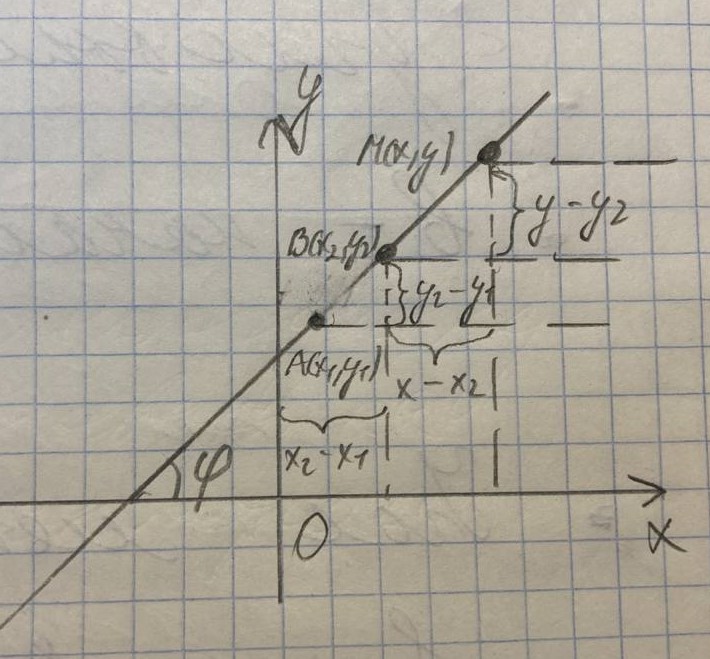 y
M(x,y)
y-y₂
B(x₂,y₂)
y₂-y₁
A(x₁,y₁)
x-x₂
x₂-x₁
φ
0
x